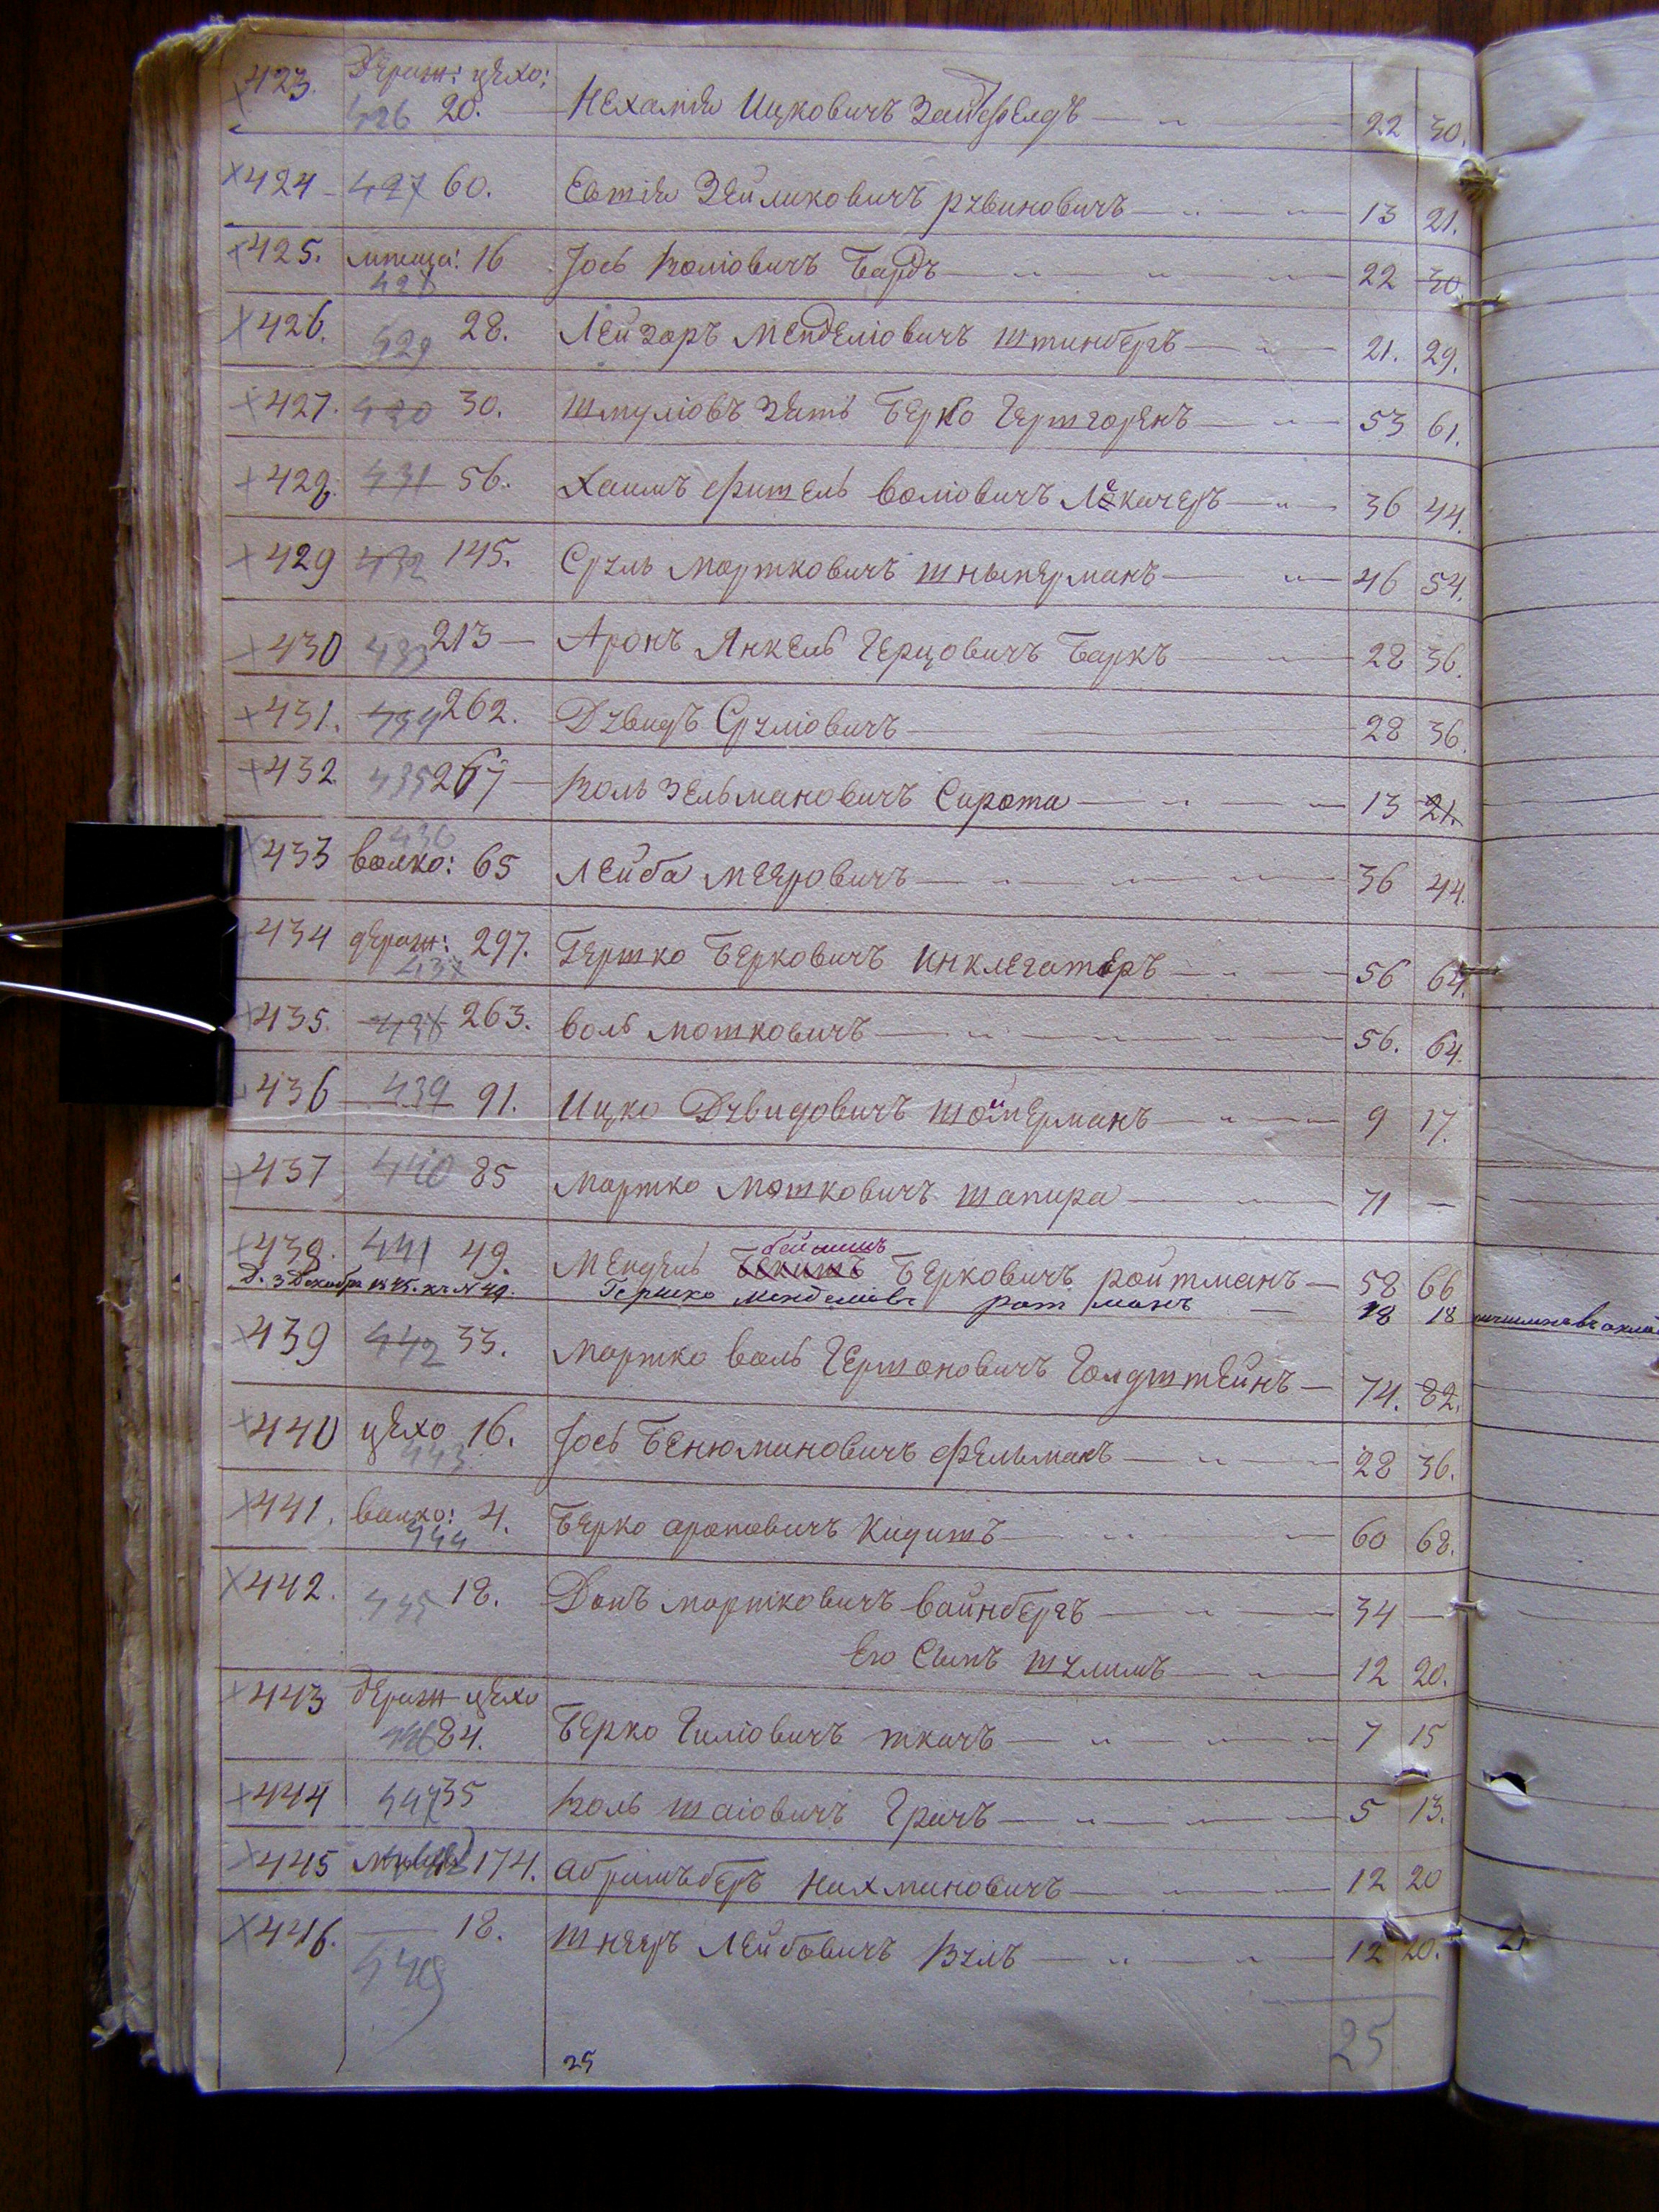 423. Держ: цехо: 426 20. Нехамiя Ицковичъ Зайдфелдъ 22 30.
424 427 60. Евтiя Зейликовичъ рувиновичъ 13 21.
425. мѣща: 16 Іось Волiовичъ Бардъ 22 30
428
426. 429 28. Лейзоръ Менделiовичъ Штинбергъ 21. 29.
427. 430 30. Шмулiовъ Зять Берко Гершгоренъ 53 61.
428. 431 56. Хаимъ Фишель волiовичъ Лекачеръ 36 44.
429 432 145. Сруль Мортковичъ 46 54.
430 433 213 Аронъ Янкель Герцовичъ Баркъ 28 36.
431. 434 262. Дувидъ Срулiовичъ 28 36.
432 435 267 Воль Зельмановичъ Сирота 13 21.
436
433 волко: 65 Лейба Мееровичъ 36 44.
434 держ: 297. Гершко Берковичъ Инклегатеръ 56 64.
437
435. 438 263. воль мошковичъ 56. 64.
436 439 91. Ицко Дувидовичъ Шойхерманъ 9 17.
437 440 85 Мортко Мошковичъ Шапира 71 —
438. 441 49. Мендель Берковичъ ройтманъ 58 66
Д. 3 Декабря Гершко Менделiовъ ротманъ 18 18
439 442 33. Мортко воль Гершоновичъ Голдштейнъ 74. 82.
440 цехо 16. Іось Бенюминовичъ Фельманъ 28 36.
443
441. волко: 4. Берко ароновичъ Кидишъ 60 68.
444
442. 445 18. Донъ мортковичъ вайнбергъ 34 —
Его Сынъ Шулимъ 12 20.
443 держ цехо
446 84. Берко Гилiовичъ ткачъ 7 15
444 447 35 Воль Шаiовичъ Грачъ 5 13.
445 448 174. Абрамъ беръ Нахмановичъ 12 20
446. 18. Шнееръ Лейбовичъ Вулъ 12 20.
449
25
25